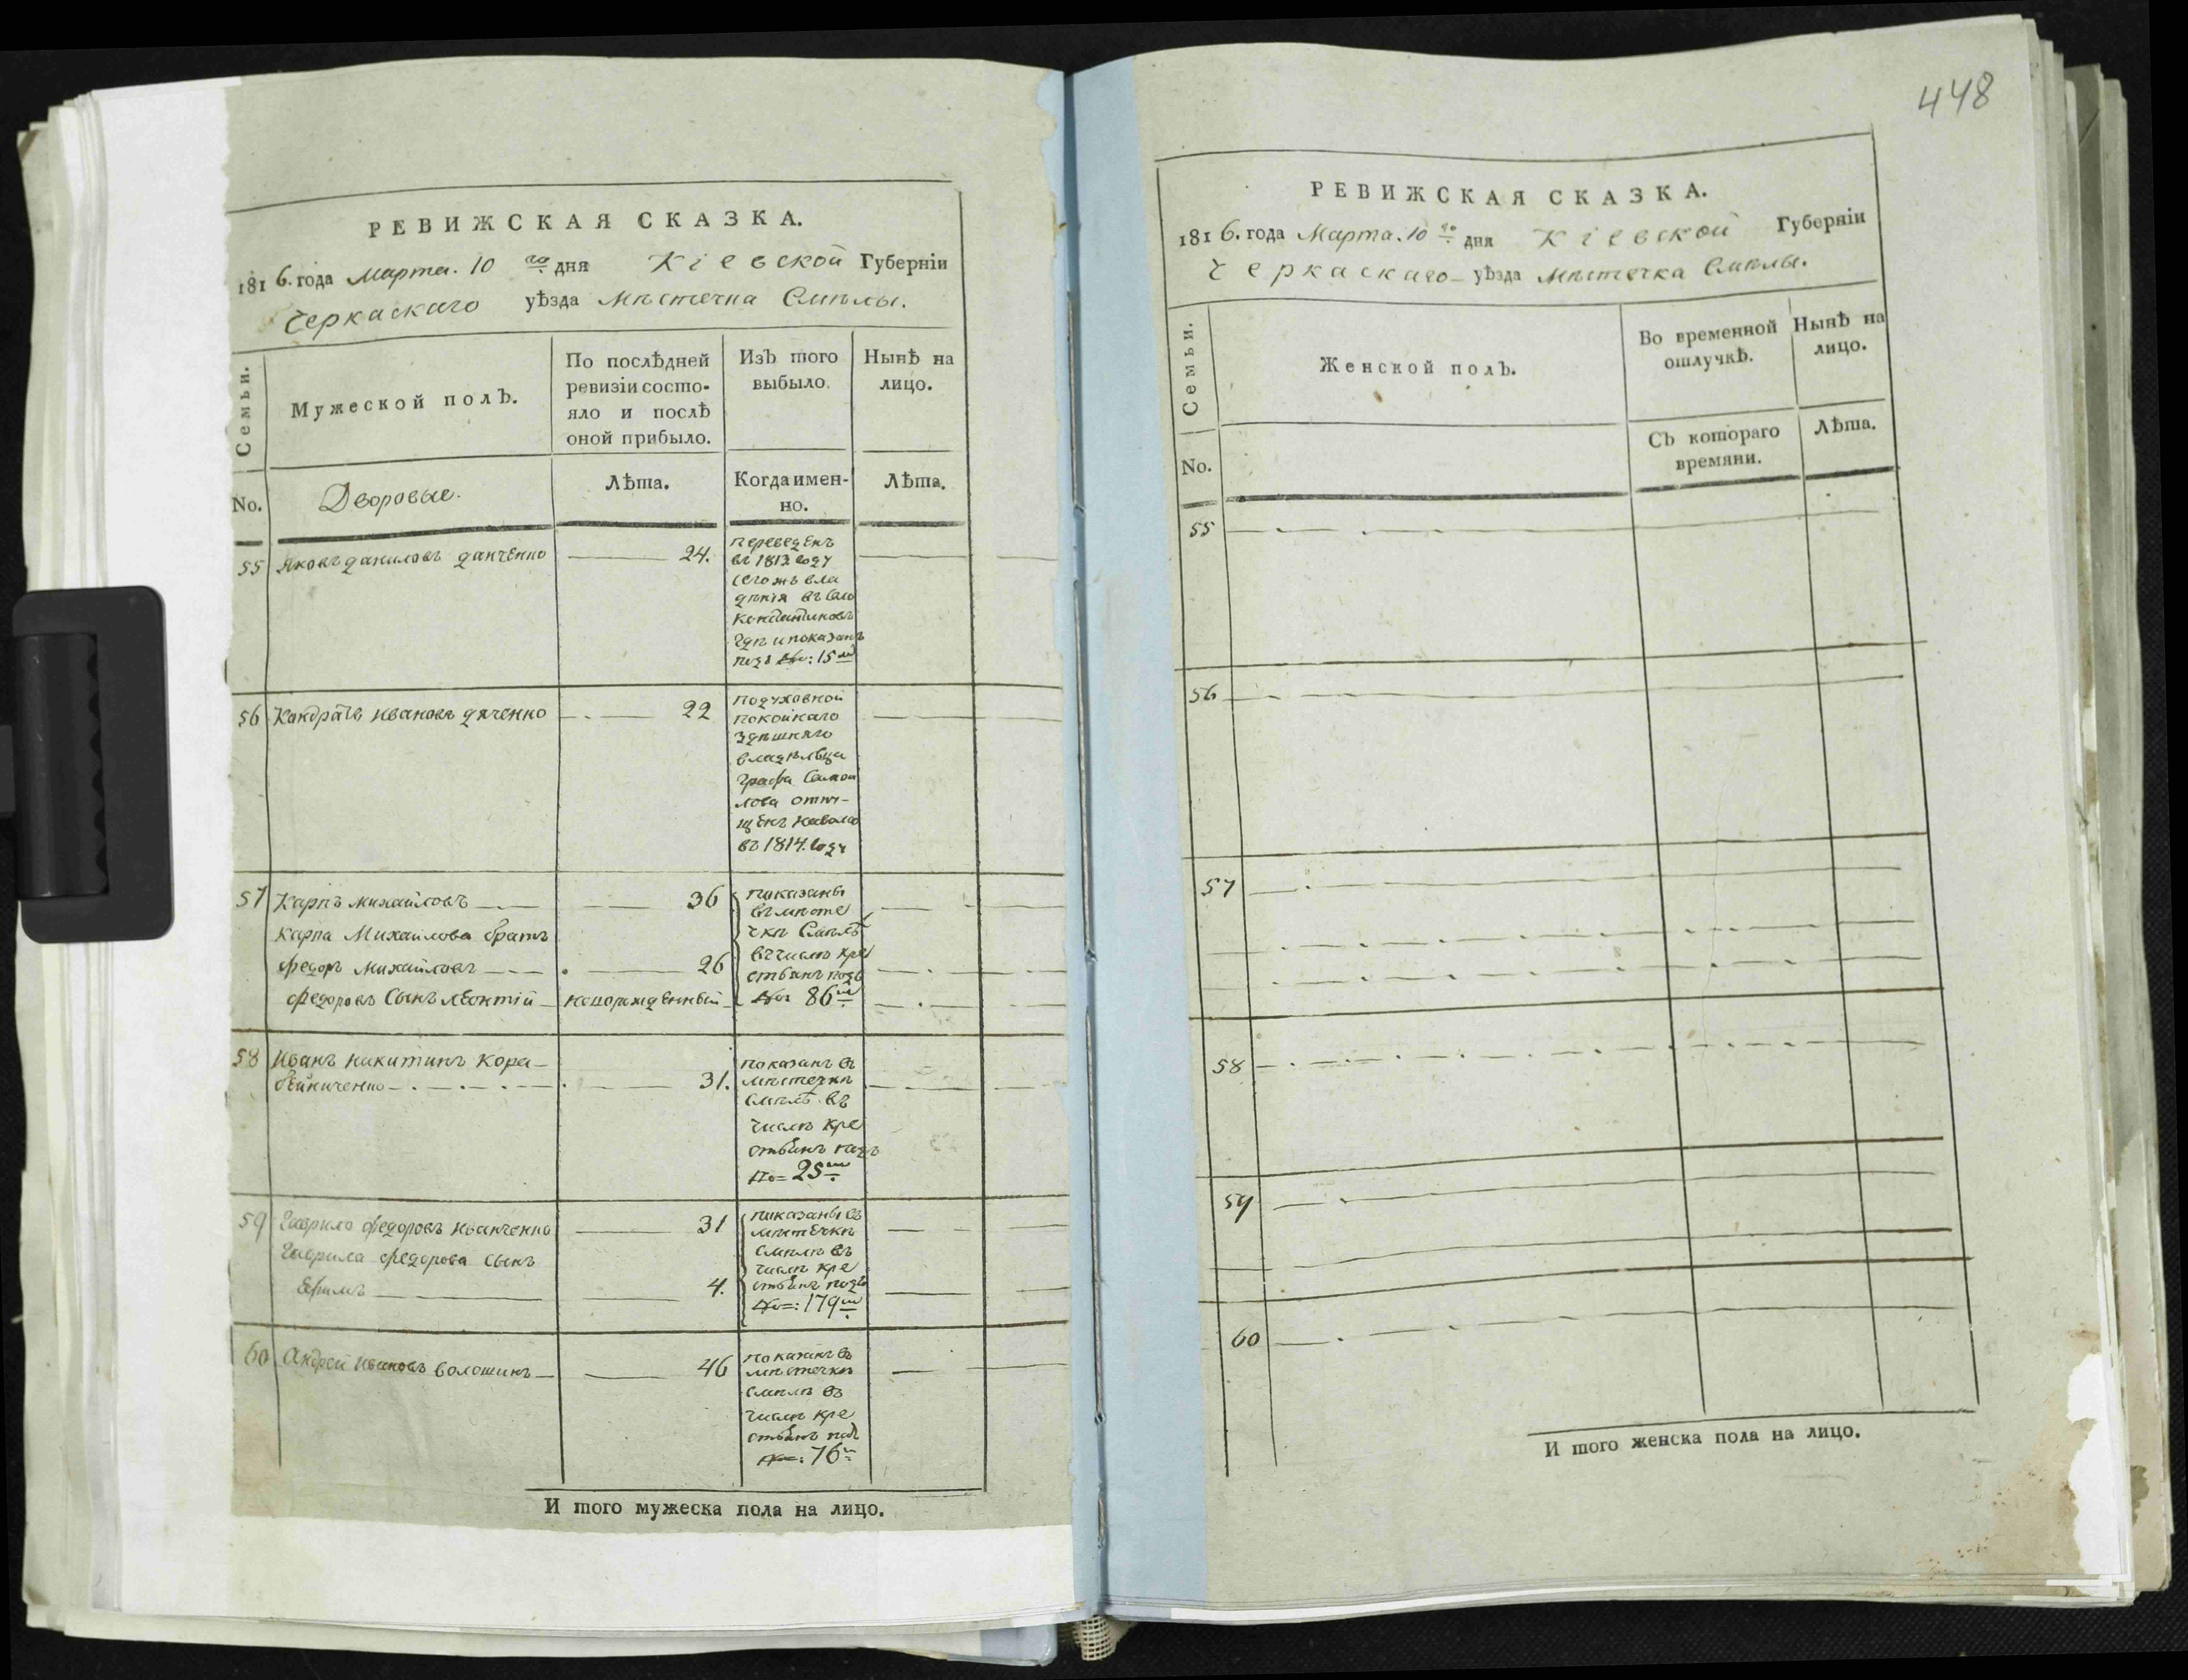 РЕВИЖСКАЯ СКАЗКА.
1816. года Марта. 10 го дня Кіевской Губерніи
Черкаскаго уѣзда Мѣстечка Смѣлы.
Семьи.
Мужеской полЪ.
По послѣдней
ревизіи состо-
яло и послѣ
оной прибыло.
ИзЪ того
выбыло.
Нынѣ на
лицо.
No.
Дворовые.
Лѣта.
Когда имен-
но.
Лѣта.
55 Яковъ даниловъ данченко 24.
переведенъ
въ 1812 году
сегожъ вла
дѣнія въ село
Константиновъ
гдѣ и показанъ
подъ No: 15 мъ
56 Кондратъ ивановъ дяченко 22
подуховной
покойнаго
здѣшняго
владѣльца
графа Самой
лова отпу-
щенъ наволю
въ 1814. году
57 Карпъ михайловъ 36
карпа Михайлова братъ
федоръ михайловъ 26
федоровъ Сынъ леонтій новорожденный
показаны
въ мѣсте
чкѣ Смѣлѣ
въ числѣ кре
стьянъ подъ
No 86 мъ
58 Иванъ никитинъ кора-
бейниченко 31.
показанъ въ
мѣстечкѣ
смѣлѣ въ
числѣ кре
стьянъ подъ
No= 25 мъ
59 Гаврило федоровъ иванченко 31
Гаврила федорова сынъ
Ефимъ 4.
показаны въ
мѣстечкѣ
смѣлѣ въ
числѣ кре
стьянъ подъ
No=: 179 мъ
60 Андрей ивановъ волошинъ 46
показанъ въ
мѣстечкѣ
смѣлѣ въ
числѣ кре
стьянъ подъ
No=: 76 мъ
И того мужеска пола на лицо.
448
РЕВИЖСКАЯ СКАЗКА.
1816. года Марта. 10 го дня Кіевской Губерніи
Черкаскаго уѣзда Мѣстечка Смѣлы.
Семьи.
Женской полЪ.
Во временной
отлучкѣ.
Нынѣ на
лицо.
No.
СЪ котораго
времяни.
Лѣта.
55
56
57
58
59
60
И того женска пола на лицо.